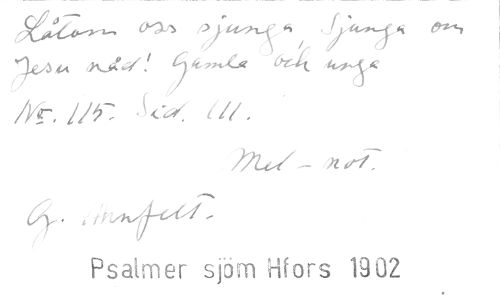 Låtom oss sjunga, Sjunga om
Jesu nåd! Gamla och unga
No. 115. Sid. 111.
Mel-not.
G. Armfelt.
Psalmer sjöm Hfors 1902